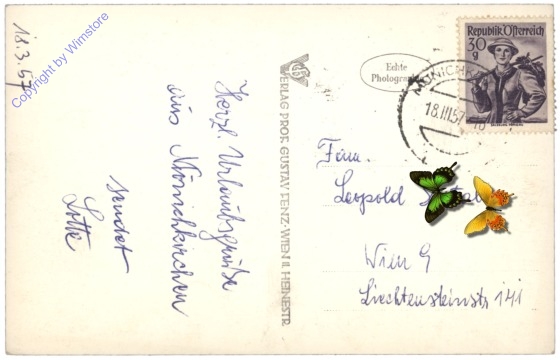 18.3.57
Copyright by Wimstore
Herzl. Urlaubsgrüße
aus Mönichkirchen
sendet
Lotte
VERLAG PROF. GUSTAV FENZ-WIEN II. HEINESTR.
Echte
Photographie
Republik Österreich
30
g
MÖNICHK
18.III.57
Fam.
Leopold
Wien 9
Liechtensteinstr 141